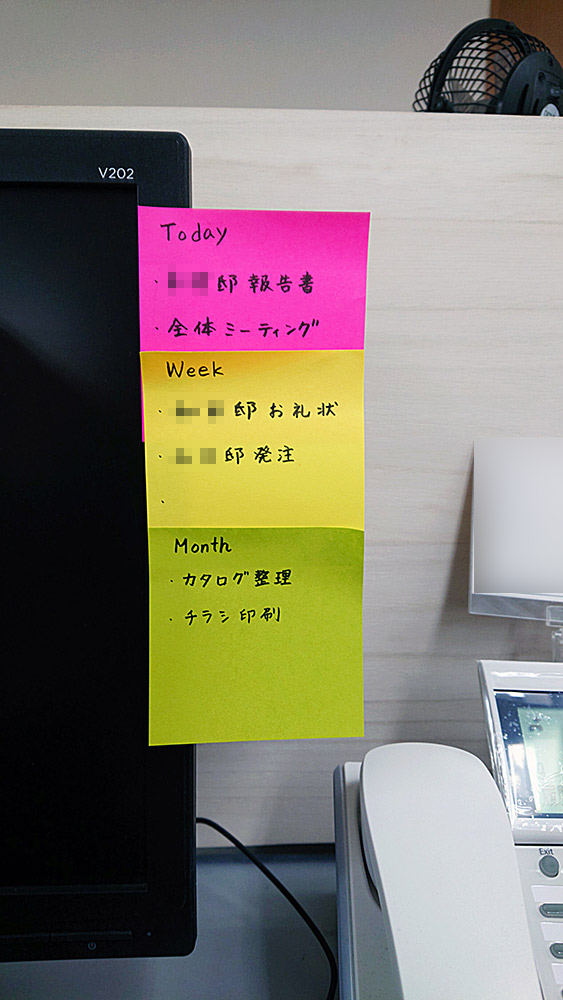 V202
Today
・邸 報告書
・全体ミーティング
Week
・邸 お礼状
・邸 発注
・
Month
・カタログ整理
・チラシ印刷
Exit